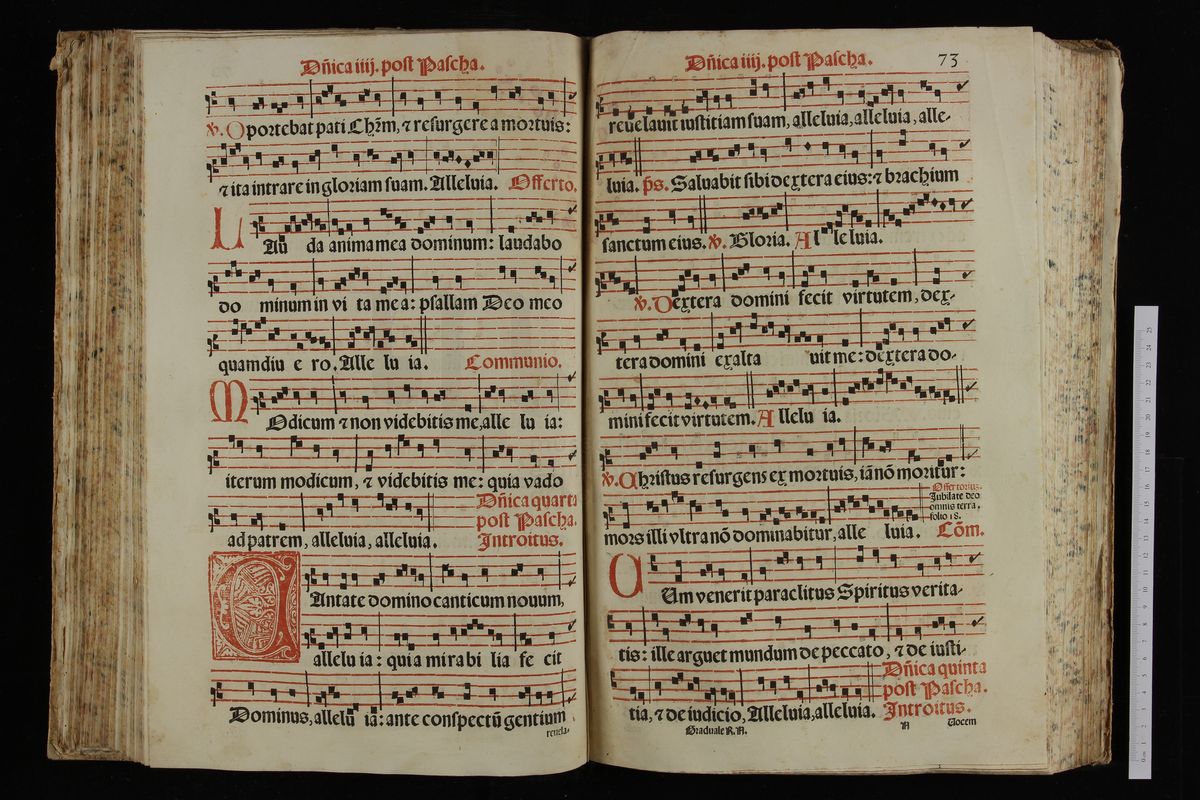 Dñica iiij. post Pascha.
℣. Oportebat pati Chr̄m, ⁊ resurgere a mortuis:
⁊ ita intrare in gloriam suam. Alleluia. Offerto.
LAu da anima mea dominum: laudabo
do minum in vi ta mea: psallam Deo meo
quamdiu e ro. Alle lu ia. Communio.
MOdicum ⁊ non videbitis me, alle lu ia:
iterum modicum, ⁊ videbitis me: quia vado
ad patrem, alleluia, alleluia.
Dñica quarta
post Pascha.
Introitus.
CAntate domino canticum nouum,
allelu ia: quia mirabi lia fe cit
Dominus, allelu ia: ante conspectū gentium
reuela-
Dñica iiij. post Pascha. 73
reuelauit iustitiam suam, alleluia, alleluia, alle-
luia. p̄s. Saluabit sibi dextera eius: ⁊ brachium
sanctum eius. ℣. Gloria. Al le luia.
℣. Dextera domini fecit virtutem, dex-
tera domini exalta uit me: dextera do-
mini fecit virtutem. Allelu ia.
℣. Christus resurgens ex mortuis, iā nō moritur:
Offertorius.
Jubilate deo
omnis terra,
folio 18.
mors illi vltra nō dominabitur, alle luia. Cōm.
CUm venerit paraclitus Spiritus verita-
tis: ille arguet mundum de peccato, ⁊ de iusti-
tia, ⁊ de iudicio, Alleluia, alleluia.
Dñica quinta
post Pascha.
Introitus.
Graduale R. A. Uocem